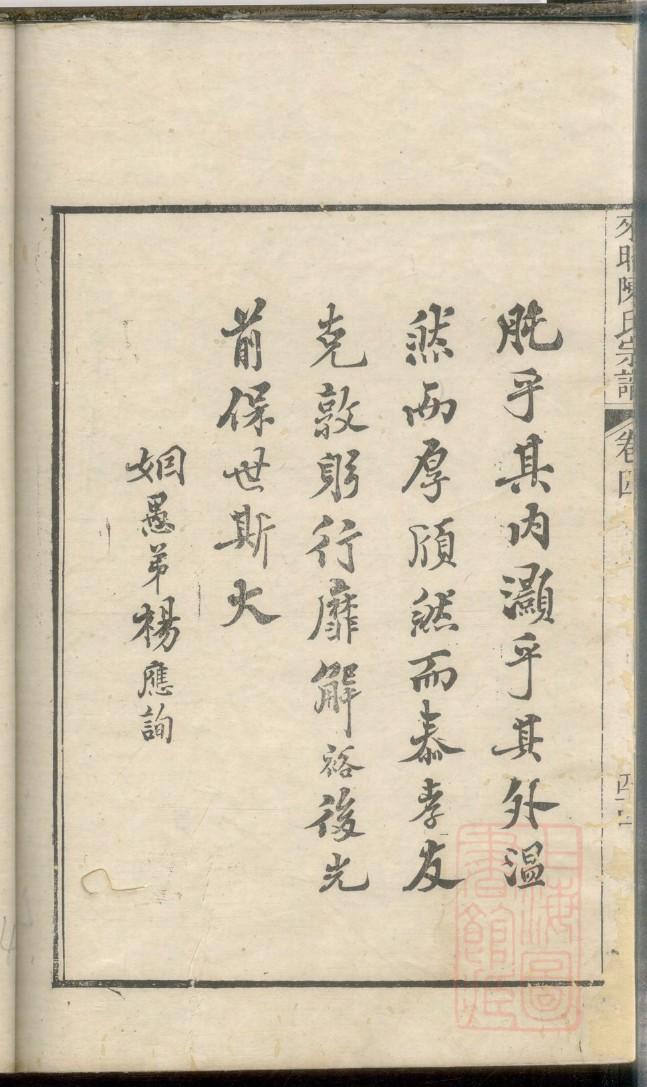 陳氏宗譜 卷四
肫乎其内灝乎其外温
然而厚頎然而泰孝友
克敦躬行靡解裕後光
前保世斯大
姻愚弟楊應詢
上海圖書館藏